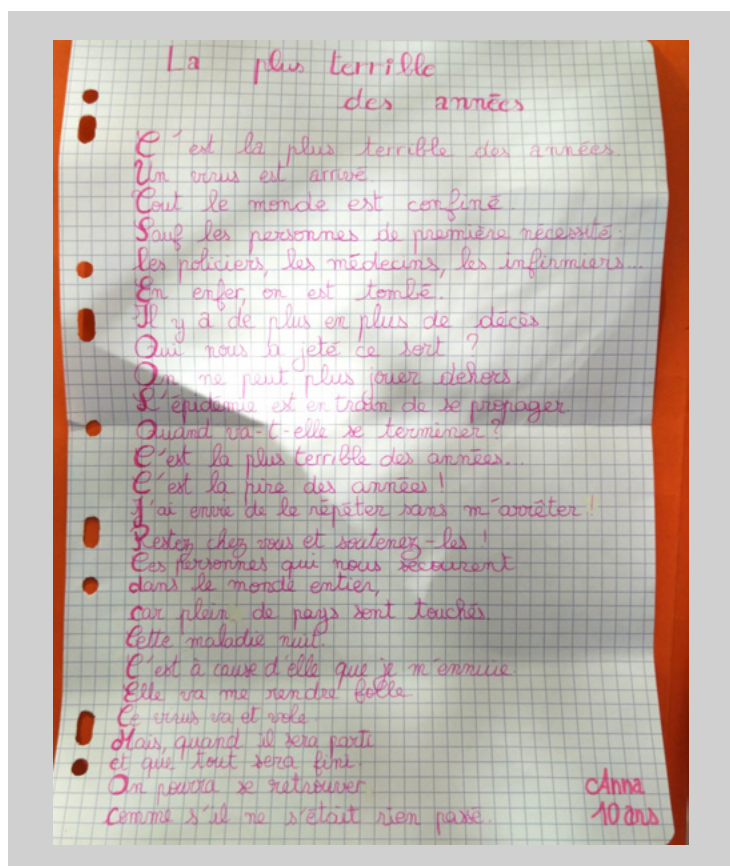 La plus terrible
des années
C'est la plus terrible des années.
Un virus est arrivé
Tout le monde est confiné.
Sauf les personnes de première nécessité.
les policiers, les médecins, les infirmiers...
En enfer, on est tombé.
Il y a de plus en plus de décès.
Qui nous a jeté ce sort ?
On ne peut plus jouer dehors.
L'épidemie est en train de se propager.
Quand va-t-elle se terminer ?
C'est la plus terrible des années...
C'est la pire des années !
J'ai envie de le répéter sans m'arrêter !
Restez chez vous et soutenez-les !
Ces personnes qui nous secourent
dans le monde entier,
car plein de pays sont touchés.
Cette maladie nuit.
C'est à cause d'elle que je m'ennuie.
Elle va me rendre folle
Ce virus va et vole.
Mais, quand il sera parti
et que tout sera fini.
On pourra se retrouver
comme s'il ne s'était rien passé.
Anna
10 ans